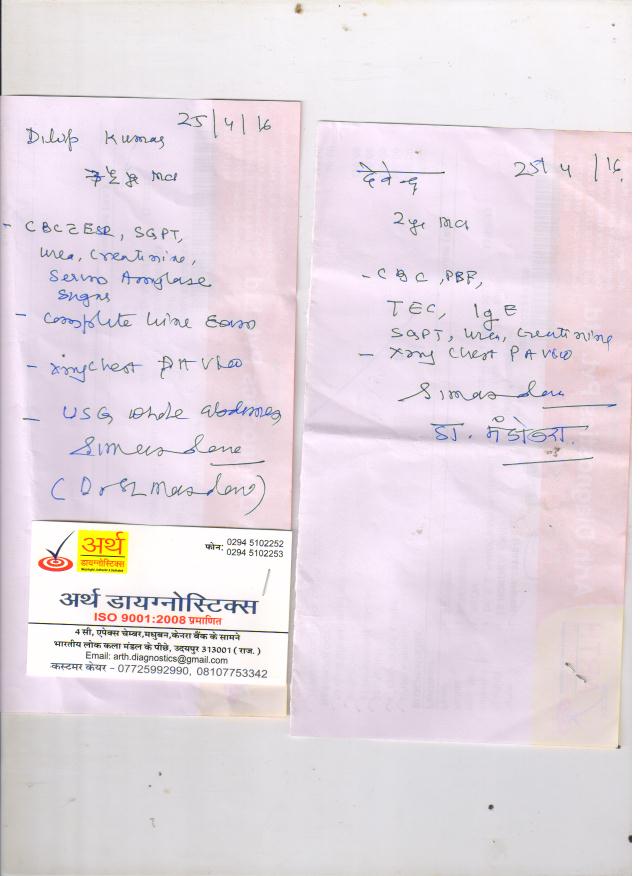 25/4/16
Dilip Kumar
- CBC Z ESR, SGPT,
Urea, Creatinine,
Serum Amylase
Sugar
- Complete Urine Exam
- Xray Chest PA View
- USG whole abdomen
अर्थ
डायग्नोस्टिक्स
फोन: 0294 5102252
0294 5102253
अर्थ डायग्नोस्टिक्स
ISO 9001:2008 प्रमाणित
4 सी, एपेक्स चेम्बर,मधुबन,केनरा बैंक के सामने
भारतीय लोक कला मंडल के पीछे, उदयपुर 313001 ( राज. )
Email: arth.diagnostics@gmail.com
कस्टमर केयर - 07725992990, 08107753342
25 4/16
देवेन्द्र
2yr
- CBC, PBF,
TEC, IgE
SGPT, Urea, Creatinine
- Xray Chest PA View
डा.